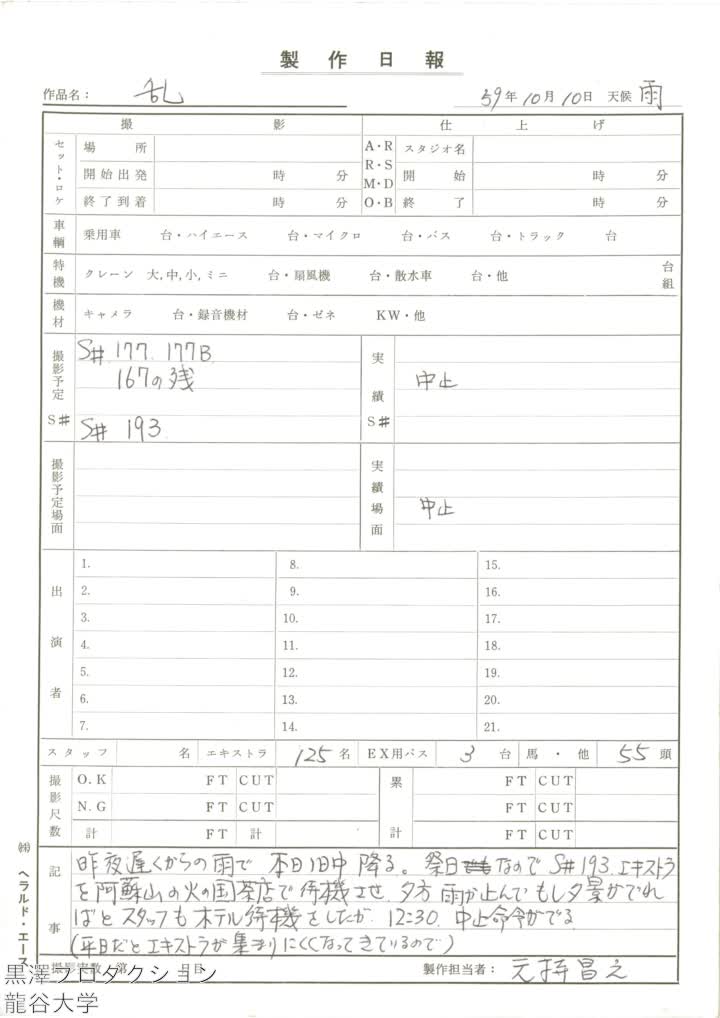 製作日報
作品名： 乱 59年10月10日 天候 雨
撮影 仕上げ
セット・ロケ 場所 A・R スタジオ名
開始出発 時 分 R・S 開始 時 分
M・D
終了到着 時 分 O・B 終了 時 分
車輌 乗用車 台・ハイエース 台・マイクロ 台・バス 台・トラック 台
特機 クレーン 大,中,小,ミニ 台・扇風機 台・散水車 台・他 台組
機材 キャメラ 台・録音機材 台・ゼネ KW・他
撮影予定S# S# 177. 177B 実績S#
167の残 中止
S# 193
撮影予定場面 実績場面 中止
出演者
1. 8. 15.
2. 9. 16.
3. 10. 17.
4. 11. 18.
5. 12. 19.
6. 13. 20.
7. 14. 21.
スタッフ 名 エキストラ 125名 EX用バス 3台 馬・他 55頭
撮影尺数 O.K FT CUT 累計 FT CUT
N.G FT CUT FT CUT
計 FT 計 FT CUT
記事
昨夜遅くからの雨で 本日1日中 降る。祭日なので S#193.エキストラ
を阿蘇山の火の国茶店で待機させ、夕方 雨が止んで もし夕景がでれ
ばと スタッフも ホテル待機をしたが、12:30. 中止命令がでる
(平日だと エキストラが集まりにくくなってきているので)
撮影実数 第 日目 製作担当者： 元持昌之
㈱ヘラルド・エース
黒澤プロダクション
龍谷大学